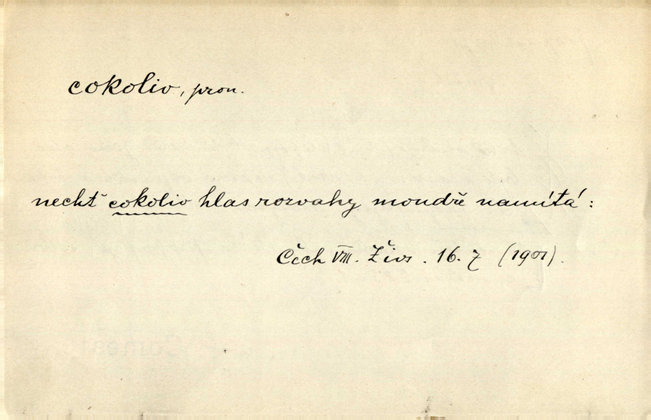 cokoliv, pron.
nechť cokoliv hlas rozvahy moudře namítá:
Čech VIII. Živ. 16. 7 (1901).